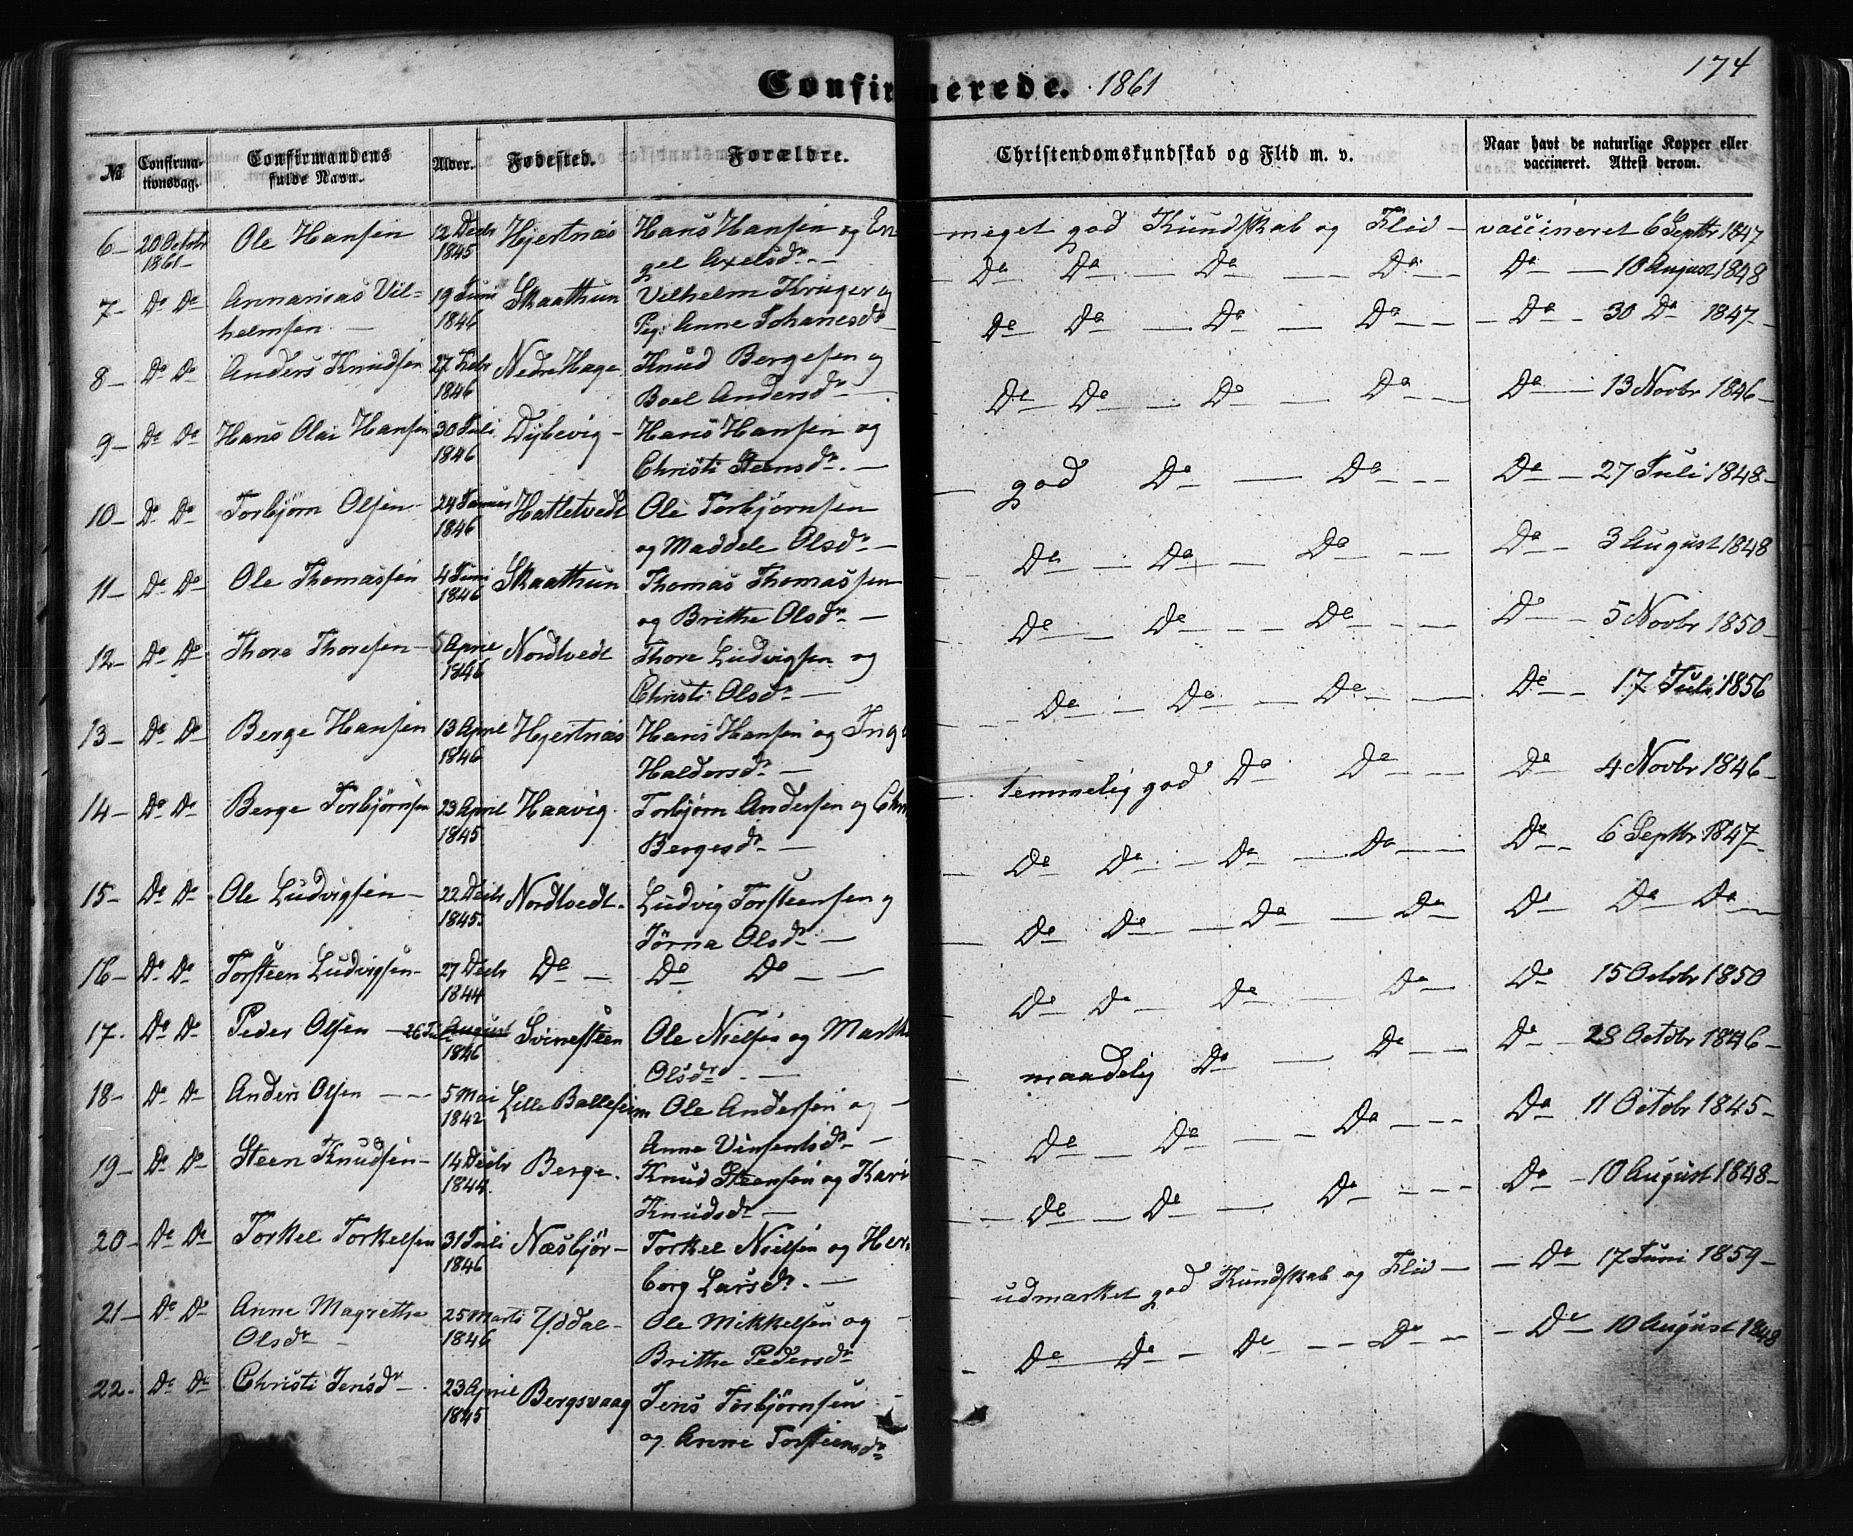 174
Confirmerede. 1861
№ Confirma-tionsdag. Confirmandens fulde Navn. Alder. Fødested. Forældre. Christendomskundskab og Flid m. v. Naar havt de naturlige Kopper eller vaccineret. Attest derom.
6 – 20 Octobr Ole Hansen 12 Decbr Hjertnæs Hans Hansen og En- meget god Kundskab og Flid – vaccineret 6 Septbr 1847
1861 – 1845 gel Axelsdr. –
7 – Do Do Annanias Vil= 19 Juni Skaathun Vilhelm Krüger og Do Do – Do – Do – Do – 10 August 1848
helmsen – 1846 Pig: Anne Johanesdr
8 – Do Do Anders Knudsen 27 Febr Nedre Hage Knud Bergesen og Do – Do – Do – Do – – Do – 30 Do 1847 –
1846 Boel Andersdr –
9 – Do Do Hans Olai Hansen 30 Juli Dybevig – Hans Hansen og Do – Do – Do – Do – – Do – 13 Novbr 1846 –
1846 Christi Steensdr. –
10 – Do Do Torbjørn Olsen – 24 Hatletvedt Ole Torbjørnsen – god Do – Do – – Do – 27 Juli 1848 –
1846 og Maddele Olsdr –
11 – Do Do Ole Thomassen 4 Juni Skaathun Thomas Thomassen – Do – Do – Do – – Do – 3 August 1848
1846 og Brithe Olsdr –
12 – Do Do Thore Thoresen – 5 April Nordtvedt Thore Ludvigsen og Do – Do – – Do – – Do – 5 Novbr 1850 –
1846 Christi Olsdr –
13 – Do Do Berge Hansen 13 April Hjertnæs Hans Hansen og Do – Do – Do – – Do – 17 Juli 1856
1846 Haldorsdr –
14 – Do Do Berge Torbjørnsen 23 April Haavig. Torbjørn Andersen og temmelig god Do – Do – – Do 4 Novbr 1846 –
1845 Bergesdr –
15 – Do Do Ole Ludvigsen – 22 Decbr Nordtvedt. Ludvig Torsteensen og Do Do – Do – Do – – Do – 6 Septbr 1847 –
1845. Jørna Olsdr –
16 – Do Do Torsteen Ludvigsen – 27 Decbr Do – Do Do – – Do Do – Do – Do Do – Do – Do –
1844
17. Do Do Peder Olsen – 26 Juli August Svinesteen Ole Nielsen og Do Do – Do – Do – Do 15 Octobr 1850
1846 Olsdr –
18 – Do Do Anders Olsen – – – 5 Mai Lille Balleseim Ole Andersen og – maadelig Do – Do – – Do – 28 Octobr 1846 –
1842 Anne Vinsentsdr –
19 – Do Do Steen Knudsen – 14 Decbr Berge. Knud Steensen og Kari Do – Do – – Do – – Do – 11 Octobr 1845 –
1844. Knudsdr –
20 – Do Do Torkel Torkelsen 31 Juli Næsbjør – Torkel Nielsen og Her- Do – Do – – Do – – – Do – 10 August 1848 –
1846 borg Larsdr. –
21 – Do Do Anne Magrethe 25 Marts Yddal – Ole Mikkelsen og – udmærket god Kundskab og Flid – – Do – 17 Juni 1859 –
Olsdr 1846 Brithe Pedersdr
22. Do Do Christi Jensdr – 23 April Bergsvaag Jens Torbjørnsen – Do – Do – Do – – Do – – Do – 10 August 1848
1845 og Anne Torsteensdr